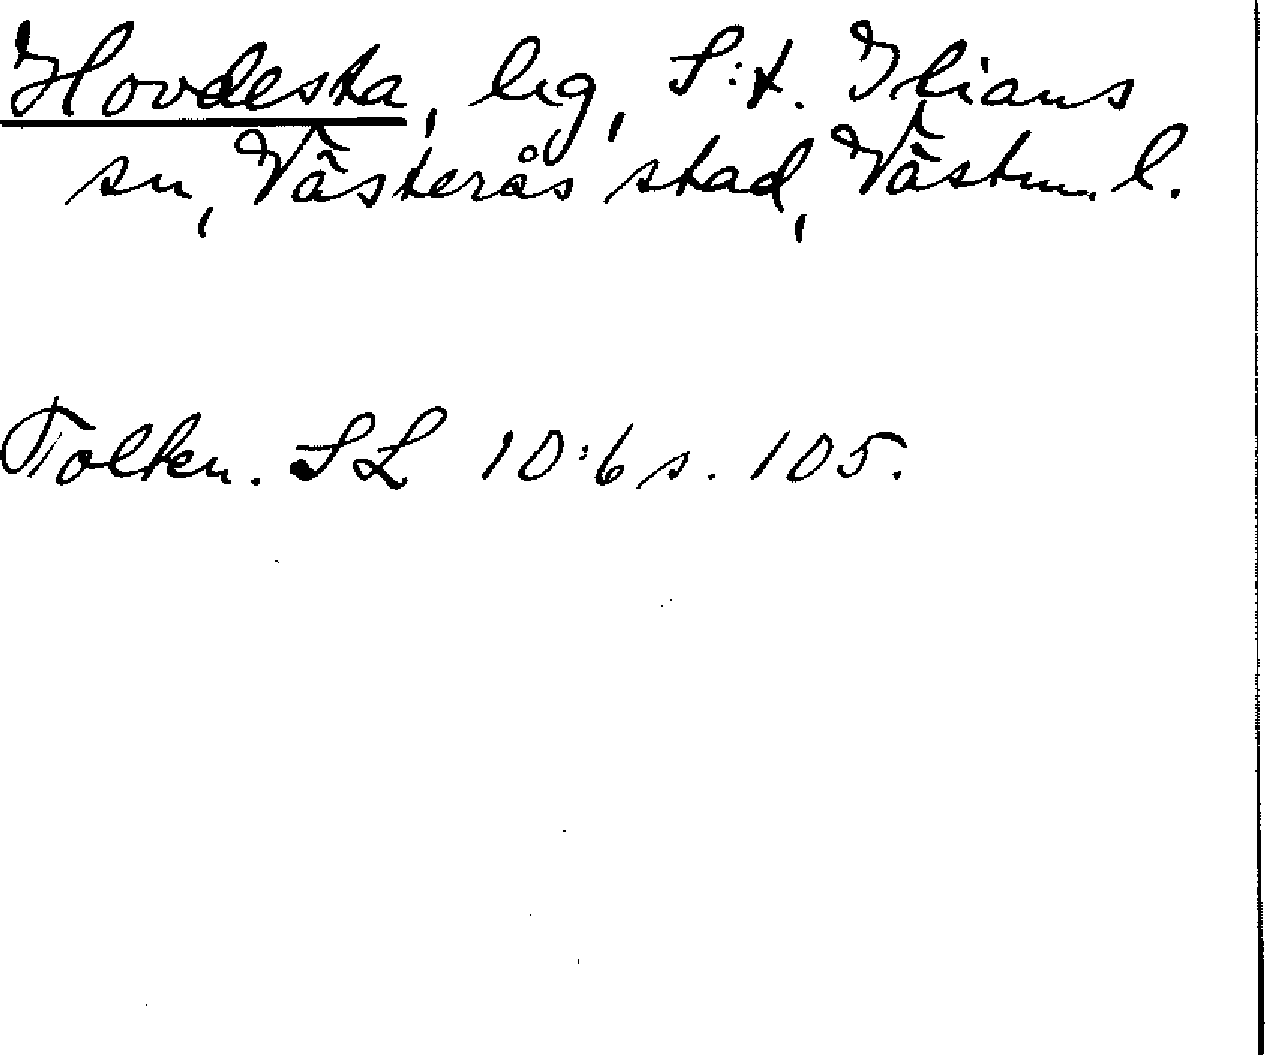 Hovdesta, lɩg, S:t. Ilians
sn, Västerås stad, Västm. l.
Tolkn. SL 10:6 s. 105.